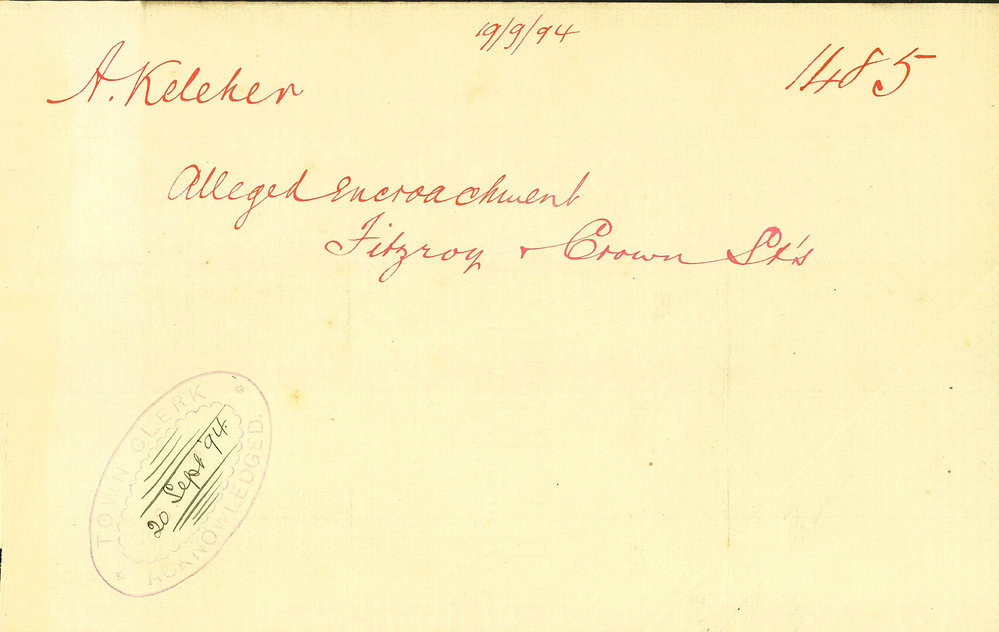 19/9/94
A. Keleher
1485
Alleged Encroachment
Fitzroy & Crown St's
TOWN CLERK
20 Sept '94
ACKNOWLEDGED.